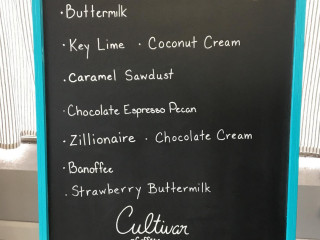 · Buttermilk
· Key Lime · Coconut Cream
· Caramel Sawdust
· Chocolate Espresso Pecan
· Zillionaire · Chocolate Cream
· Banoffee
· Strawberry Buttermilk
Cultivar